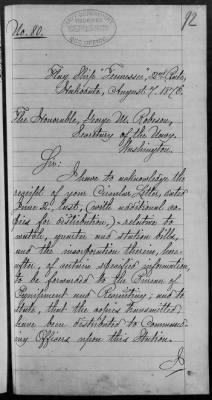 92
No. 80.
Flag Ship "Tennessee", 2nd Rate,
Hakodate, August 7, 1876.
The Honorable, George M. Robeson,
Secretary of the Navy.
Washington.
Sir:
I have to acknowledge the
receipt of your Circular Letter, dated
June 21, last, (with additional co-
pies for distribution,) relating to
watch, quarter and station bills,
and the incorporation therein, here-
after, of certain specified information,
to be forwarded to the Bureau of
Equipment and Recruiting; and to
state, that the copies transmitted
have been distributed to Command-
ing Officers upon this Station.